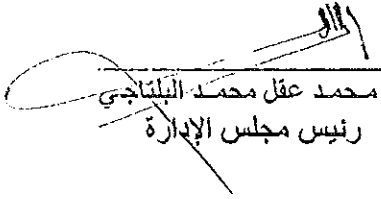 محمد عقل محمد البلتاجي
رئيس مجلس الإدارة